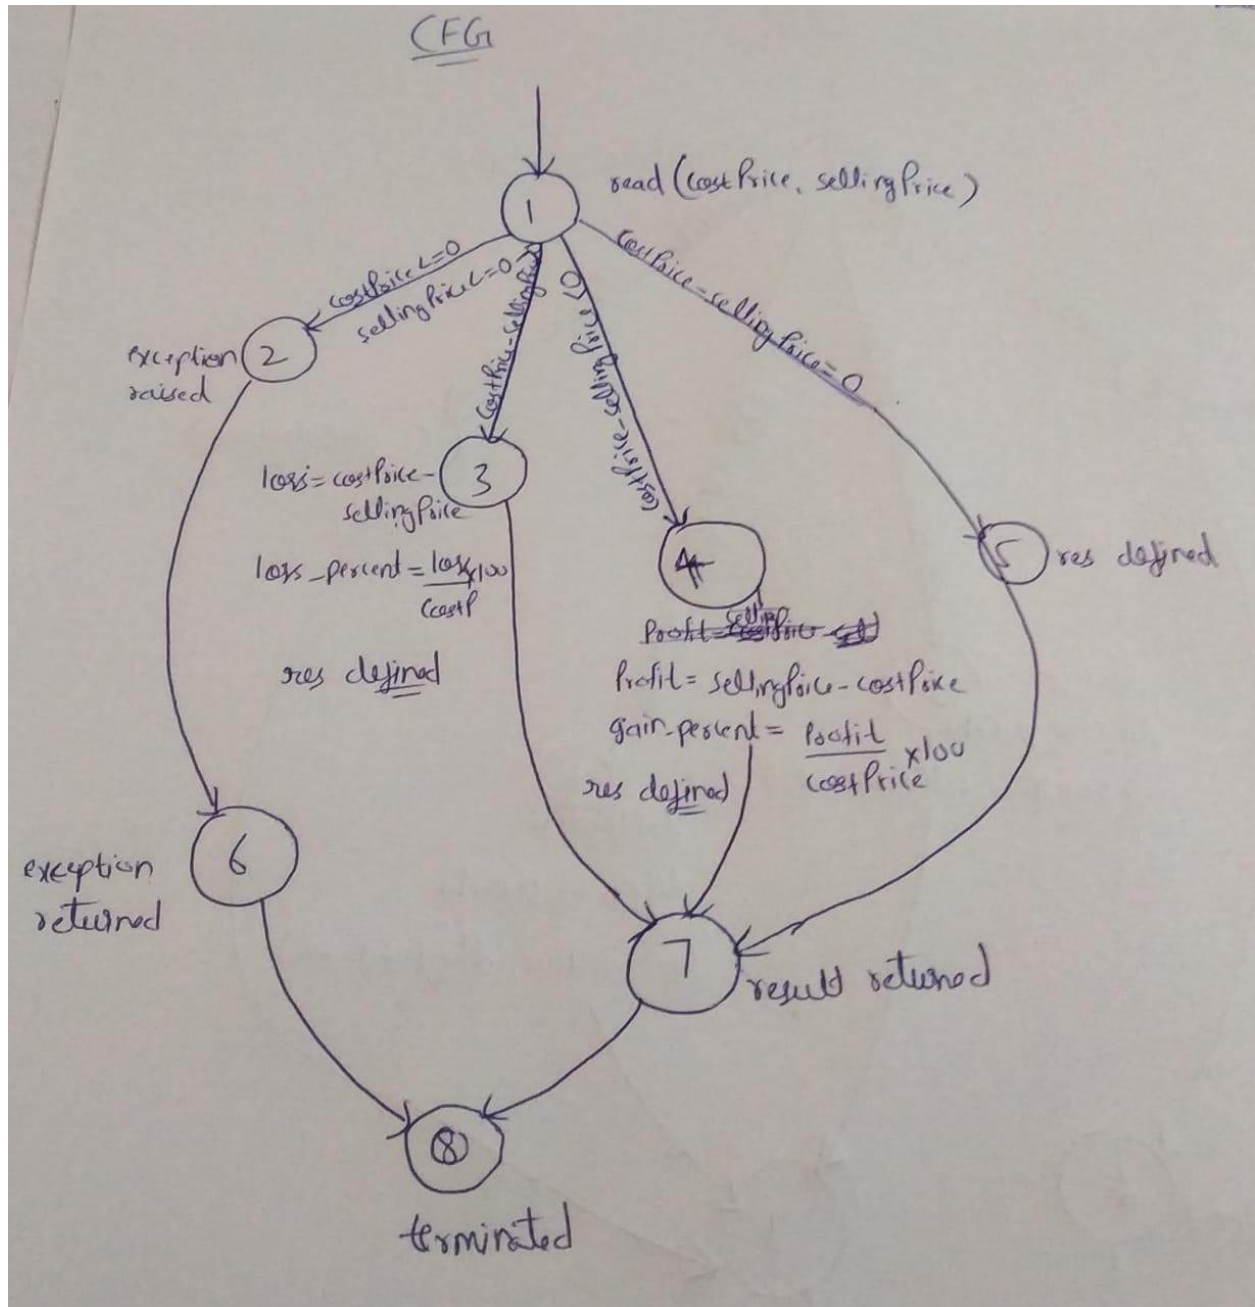 CFG
read (costPrice, sellingPrice)
1
costPrice <=0
sellingPrice <=0
costPrice-sellingPrice
costPrice-sellingPrice <0
costPrice-sellingPrice=0
2
exception
raised
3
loss=costPrice-
sellingPrice
loss_percent=loss x100
costP
res defined
4
5
res defined
Profit=
Profit= sellingPrice-costPrice
gain-percent= Profit x100
costPrice
res defined
6
exception
returned
7
result returned
8
terminated